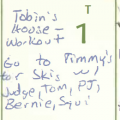 Tobin's
House -
Workout
T
1
Go to Timmy's
for Skis w/
Judge, Tom, PJ,
Bernie, Squi